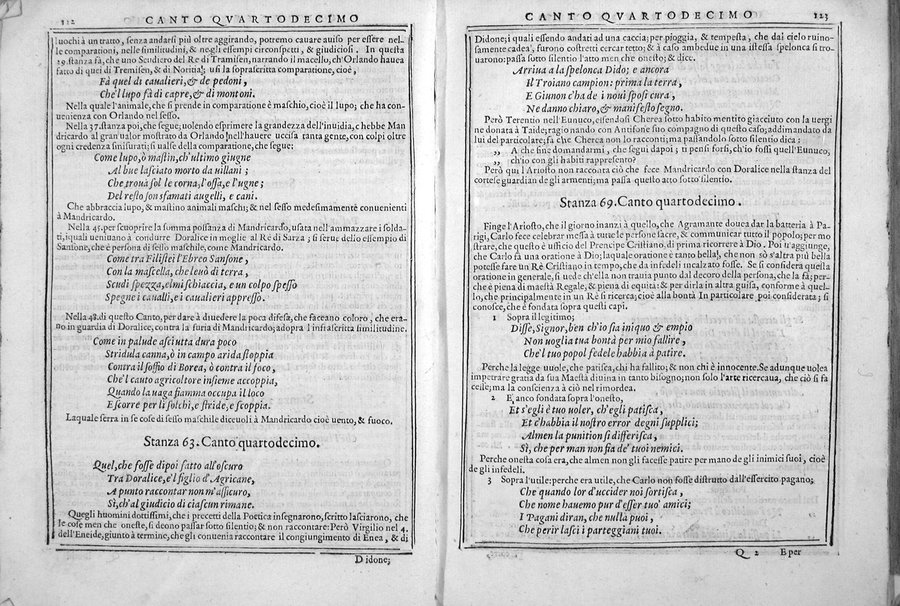 112 CANTO QVARTODECIMO
luochi à un tratto, senza andarsi più oltre aggirando, potremo cauare auiso per essere nelle
comparationi, nelle similitudini, & negli essempi circonspetti, & giudiciosi. In questa
29. stanza fà, che uno Scudiero del Re di Tramisen, narrando il macello, ch'Orlando hauea
fatto di quei di Tremisen, & di Noritia, usi la soprascritta comparatione, cioè,
Fà quel di caualieri, & de pedoni,
Che'l lupo fà di capre, & di montoni.
Nella quale l'animale, che si prende in comparatione è maschio, cioè il lupo; che ha con-
uenienza con Orlando nel sesso.
Nella 37. stanza poi, che segue; uolendo esprimere la grandezza dell'inuidia, c'hebbe Man
dricardo al gran ualor mostrato da Orlando nell'hauere uccisa tanta gente, con colpi oltre
ogni credenza smisurati; si ualse della comparatione, che segue:
Come lupo, ò mastin, ch'ultimo giugne
Al bue lasciato morto da uillani;
Che troua sol le corna, l'ossa, e l'ugne;
Del resto son sfamati augelli, e cani.
Che abbraccia lupo, & mastino animali maschi; & nel sesso medesimamente conuenienti
à Mandricardo.
Nella 45. per scuoprire la somma possanza di Mandricardo, usata nell'ammazzare i solda-
ti, iquali ueniuano à condurre Doralice in moglie al Rè di Sarza; si serue dello essempio di
Sansone, che è persona di sesso maschile, come Mandricardo.
Come tra Filistei l'Ebreo Sansone,
Con la mascella, che leuò di terra,
Scudi spezza, elmi schiaccia, e un colpo spesso
Spegne i caualli, e i caualieri appresso.
Nella 48. di questo Canto, per dare à diuedere la poca difesa, che faceano coloro, che era-
no in guardia di Doralice, contra la furia di Mandricardo; adopra l'infrascritta similitudine.
Come in palude asciutta dura poco
Stridula canna, ò in campo arida stoppia
Contra il soffio di Borea, ò contra il foco,
Che'l cauto agricoltore insieme accoppia,
Quando la uaga fiamma occupa il loco
E scorre per li solchi, e stride, e scoppia.
Laquale serra in se cose di sesso maschile diceuoli à Mandricardo cioè uento, & fuoco.
Stanza 63. Canto quartodecimo.
Quel, che fosse dipoi fatto all'oscuro
Tra Doralice, e'l figlio d'Agricane,
A punto raccontar non m'assicuro,
Sì, ch'al giudicio di ciascun rimane.
Quegli huomini dottissimi, che i precetti della Poetica insegnarono, scritto lasciarono, che
le cose men che oneste, si deono passar sotto silentio; & non raccontare: Però Virgilio nel 4.
dell'Eneide, giunto à termine, che gli conuenia raccontare il congiungimento di Enea, & di
Didone;
CANTO QVARTODECIMO 123
Didone; i quali essendo andati ad una caccia; per pioggia, & tempesta, che dal cielo ruino-
samente cadea', furono costretti cercar tetto; & à caso ambedue in una istessa spelonca si tro-
uarono: passa sotto silentio l'atto men che onesto; & dice.
Arriua a la spelonca Dido; e ancora
Il Troiano campion: prima la terra,
E Giunon c'ha de i noui sposi cura,
Ne danno chiaro, & manifesto segno.
Però Terentio nell'Eunuco, essendosi Cherea sotto habito mentito giacciuto con la uergi
ne donata à Taide; ragionando con Antifone suo compagno di questo caso; addimandato da
lui del particolare; fa che Cherea non lo racconti; ma passandolo sotto silentio dica:
„ A che fine domandarmi, che seguì dapoi; ti pensi forsi, ch'io fossi quell'Eunuco,
„ ch'io con gli habiti rappresento?
Però qui l'Ariosto non racconta ciò che fece Mandricardo con Doralice nella stanza del
cortese guardian de gli armenti; ma passa questo atto sotto silentio.
Stanza 69. Canto quartodecimo.
Finge l'Ariosto, che il giorno inanzi à quello, che Agramante douea dar la batteria à Pa-
rigi, Carlo fece celebrar messa à tutte le persone sacre, & communicar tutto il popolo; per mo
strare, che questo è ufficio del Prencipe Cristiano, di prima ricorrere à Dio. Poi u'aggiunge,
che Carlo fà una oratione à Dio; la quale oratione è tanto bella, che non sò s'altra più bella
potesse fare un Rè Cristiano in tempo, che da infedeli incalzato fosse. Se si considera questa
oratione in generale, si uede ch'ella non tratia punto dal decoro della persona, che la fà; per-
che è piena di maestà Regale, & piena di equità: & per dirla in altra guisa, conforme à quel-
lo, che principalmente in un Rè si ricerca; cioè alla bontà In particolare poi considerata; si
conosce, che è fondata sopra questi capi.
1 Sopra il legitimo;
Disse, Signor, ben ch'io sia iniquo & empio
Non uoglia tua bontà per mio fallire,
Che'l tuo popol fedele habbia à patire.
Perche la legge uuole, che patisca, chi ha fallito; & non chi è innocente. Se adunque uolea
impetrare gratia da sua Maestà diuina in tanto bisogno; non solo l'arte ricercaua, che ciò si fa
ceile; ma la conscienza à ciò nel rimordea.
2 E anco fondata sopra l'onesto,
Et s'egli è tuo uoler, ch'egli patisca,
Et c'habbia il nostro error degni supplici;
Almen la punition si differisca,
Sì, che per man non sia de' tuoi nemici.
Perche onesta cosa era, che almen non gli facesse patire per mano de gli inimici suoi, cioè
de gli infedeli.
3 Sopra l'utile: perche era utile, che Carlo non fosse distrutto dall'essercito pagano;
Che quando lor d'uccider noi sortisca,
Che nome hauemo pur d'esser tuo' amici;
I Pagani diran, che nulla puoi,
Che perir lasci i parteggiani tuoi.
Q 2 E per